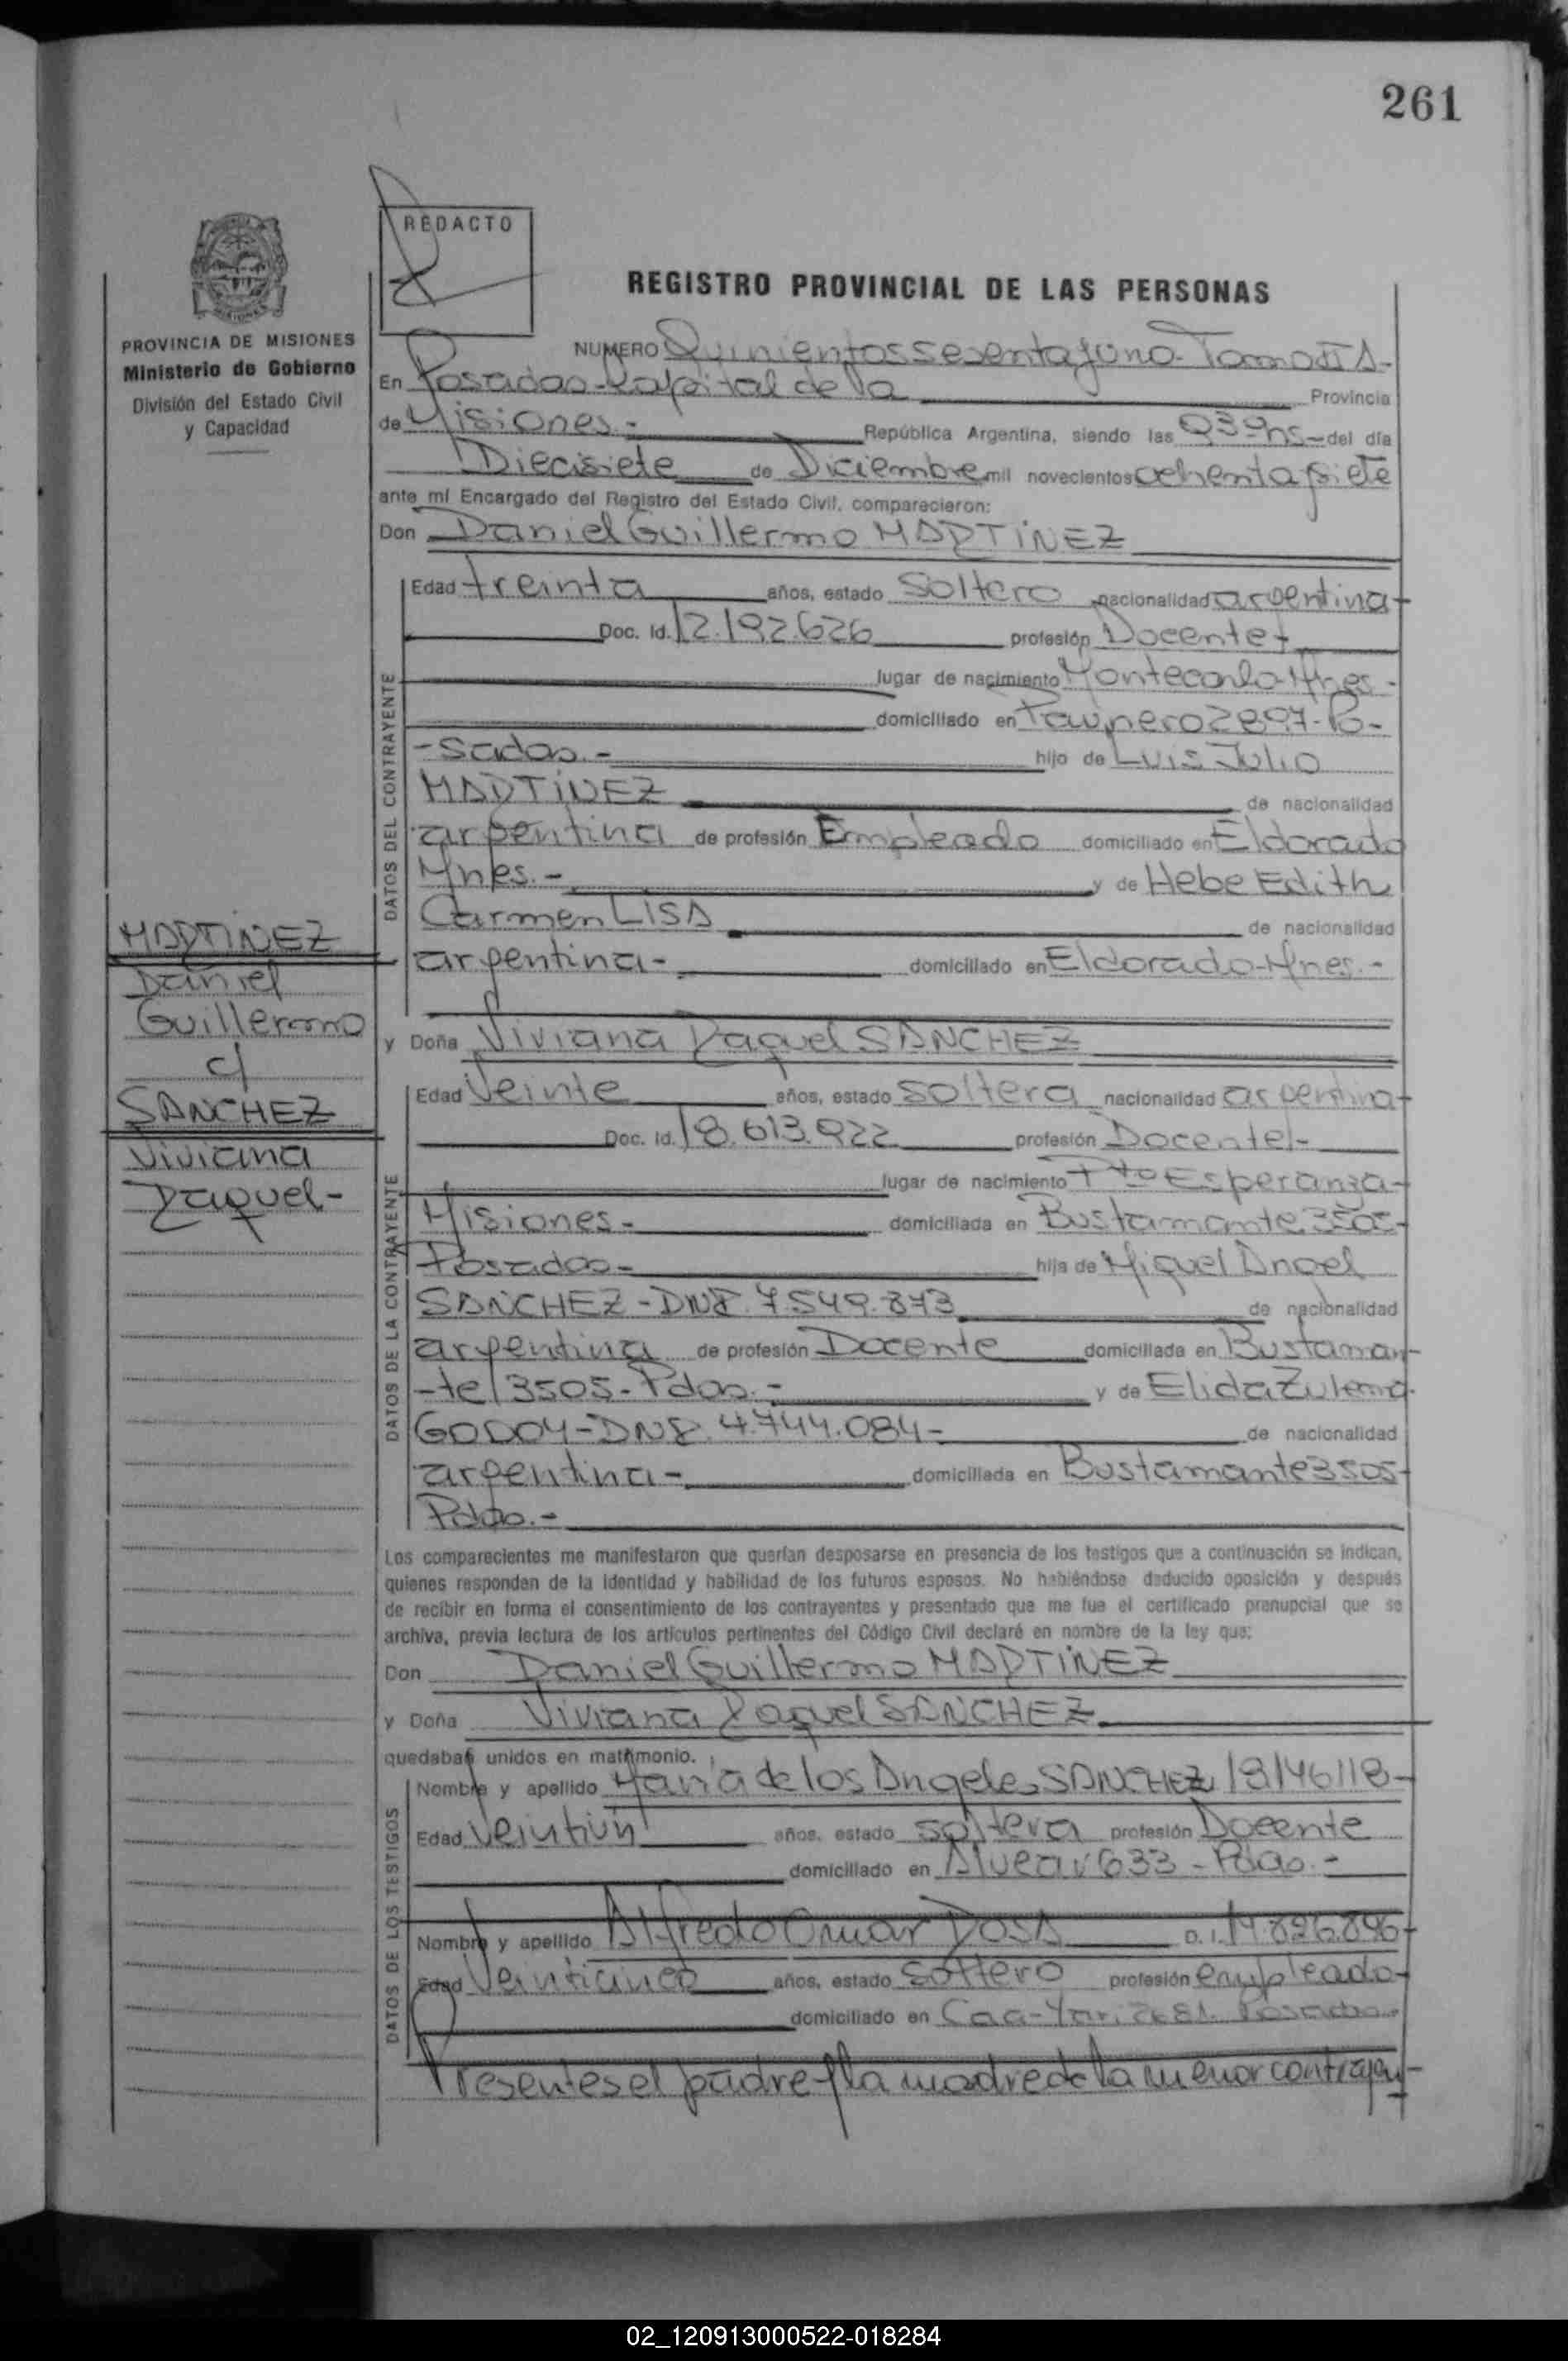 261
REDACTO
REGISTRO PROVINCIAL DE LAS PERSONAS
PROVINCIA DE MISIONES
Ministerio de Gobierno
División del Estado Civil
y Capacidad
NUMERO Quinientos sesenta y uno - Tomo
En Posadas - Capital de la Provincia
de Misiones.- República Argentina, siendo las del día
Diecisiete de Diciembre mil novecientos ochenta y siete
ante mí Encargado del Registro del Estado Civil, comparecieron:
Don Daniel Guillermo MARTINEZ
DATOS DEL CONTRAYENTE
Edad treinta años, estado Soltero nacionalidad argentina-
Doc. Id. 12.192.626 profesión Docente-
lugar de nacimiento Montecarlo-Mnes-
domiciliado en Paunero 2897-Po-
-sadas.- hijo de Luis Julio
MARTINEZ de nacionalidad
argentina de profesión Empleado domiciliado en Eldorado
Mnes.- y de Hebe Edith
Carmen LISA de nacionalidad
argentina- domiciliado en Eldorado-Mnes.-
MARTINEZ
Daniel
Guillermo
c/
SANCHEZ
Viviana
Raquel-
y Doña Viviana Raquel SANCHEZ
DATOS DE LA CONTRAYENTE
Edad Veinte años, estado Soltera nacionalidad argentina-
Doc. Id. 18.613.922 profesión Docente-
lugar de nacimiento Pto Esperanza-
Misiones.- domiciliada en Bustamante 3505-
Posadas- hija de Miguel Angel
SANCHEZ-DNI. 7.549.873 de nacionalidad
argentina de profesión Docente domiciliada en Bustaman-
-te 3505-Pdas.- y de Elida Zulema
GODOY-DNI. 4.744.084- de nacionalidad
argentina- domiciliada en Bustamante 3505-
Pdas.-
Los comparecientes me manifestaron que querían desposarse en presencia de los testigos que a continuación se indican,
quienes responden de la identidad y habilidad de los futuros esposos. No habiéndose deducido oposición y después
de recibir en forma el consentimiento de los contrayentes y presentado que me fue el certificado prenupcial que se
archiva, previa lectura de los artículos pertinentes del Código Civil declaré en nombre de la ley que:
Don Daniel Guillermo MARTINEZ
y Doña Viviana Raquel SANCHEZ
quedaban unidos en matrimonio.
DATOS DE LOS TESTIGOS
Nombre y apellido María de los Angeles SANCHEZ 18146118-
Edad Veintiún años, estado soltera profesión Docente
domiciliado en Alvear 633-Pdas.-
Nombre y apellido Alfredo Omar ROSA D. I. 14.826.896-
Edad Veinticinco años, estado Soltero profesión empleado-
domiciliado en Caa-Yari 2681. Posadas-
Presentes el padre y la madre de la menor contrayen-
02_120913000522-018284